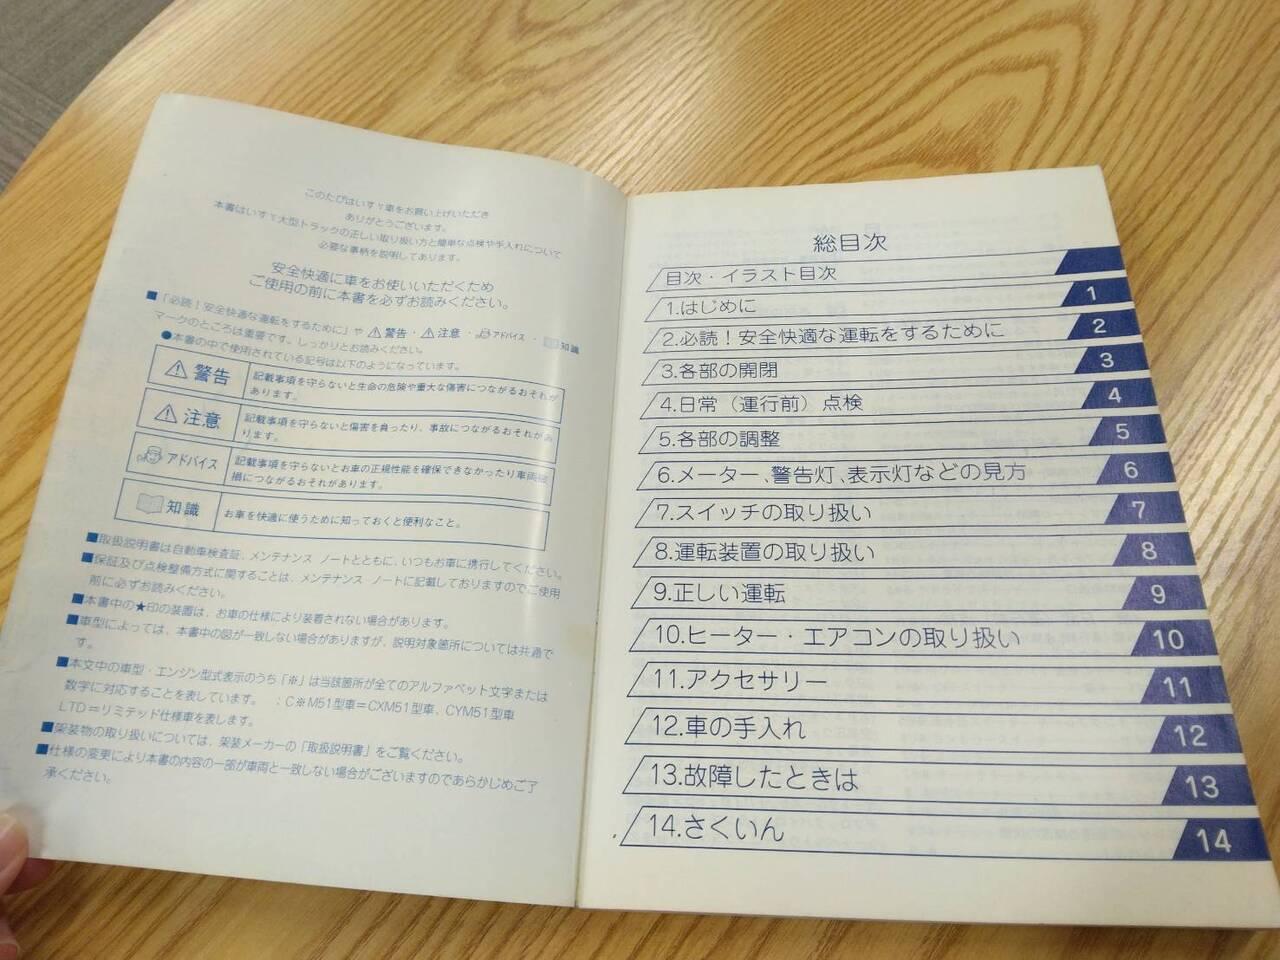 このたびはいすゞ車をお買い上げいただき
ありがとうございます。
本書はいすゞ大型トラックの正しい取り扱い方と簡単な点検や手入れについて
必要な事柄を説明してあります。
安全快適に車をお使いいただくため
ご使用の前に本書を必ずお読みください。
■「必読！安全快適な運転をするために」や⚠警告・⚠注意・アドバイス・知識
マークのところは重要です。しっかりとお読みください。
●本書の中で使用されている記号は以下のようになっています。
⚠警告
記載事項を守らないと生命の危険や重大な傷害につながるおそれが
あります。
⚠注意
記載事項を守らないと傷害を負ったり、事故につながるおそれがあ
ります。
アドバイス
記載事項を守らないとお車の正規性能を確保できなかったり車両破
損につながるおそれがあります。
知識
お車を快適に使うために知っておくと便利なこと。
■取扱説明書は自動車検査証、メンテナンス ノートとともに、いつもお車に携行してください。
■保証及び点検整備方式に関することは、メンテナンス ノートに記載しておりますのでご使用
前に必ずお読みください。
■本書中の★印の装置は、お車の仕様により装着されない場合があります。
■車型によっては、本書中の図が一致しない場合がありますが、説明対象箇所については共通で
す。
■本文中の車型・エンジン型式表示のうち「※」は当該箇所が全てのアルファベット文字または
数字に対応することを表しています。 ：C※M51型車＝CXM51型車、CYM51型車
LTD＝リミテッド仕様車を表します。
■架装物の取り扱いについては、架装メーカーの「取扱説明書」をご覧ください。
■仕様の変更により本書の内容の一部が車両と一致しない場合がございますのであらかじめご了
承ください。
総目次
目次・イラスト目次
1.はじめに 1
2.必読！安全快適な運転をするために 2
3.各部の開閉 3
4.日常（運行前）点検 4
5.各部の調整 5
6.メーター、警告灯、表示灯などの見方 6
7.スイッチの取り扱い 7
8.運転装置の取り扱い 8
9.正しい運転 9
10.ヒーター・エアコンの取り扱い 10
11.アクセサリー 11
12.車の手入れ 12
13.故障したときは 13
14.さくいん 14